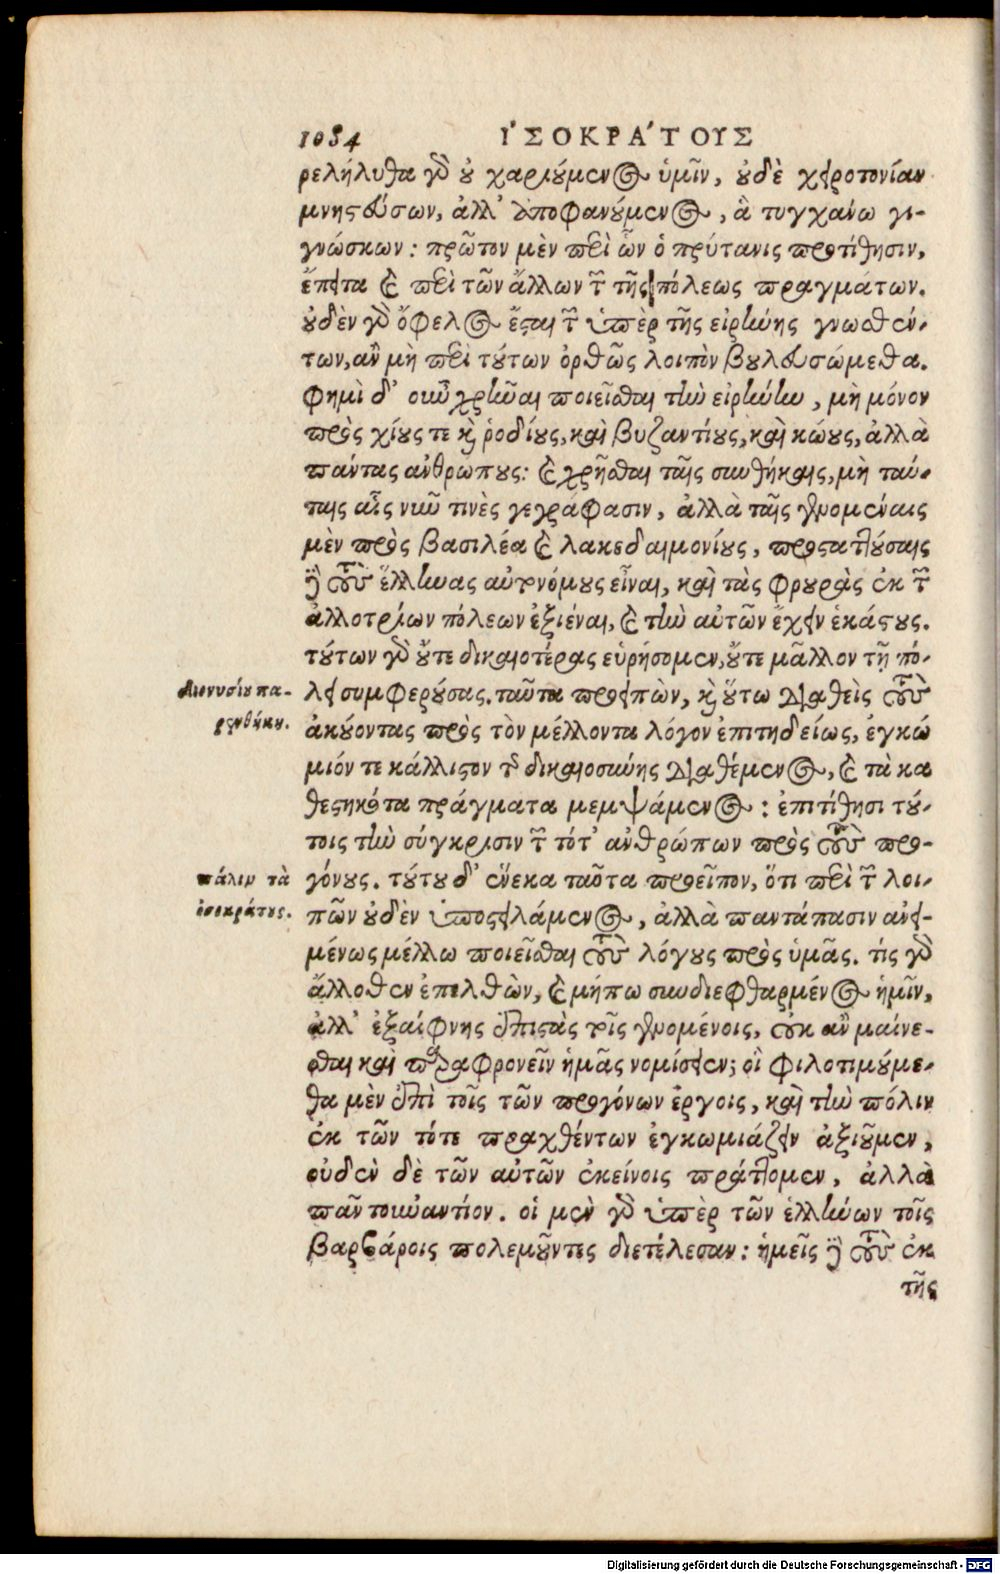 1034 ἸΣΟΚΡΆΤΟΥΣ
ρελήλυθα γὰρ οὐ χαριούμενος ὑμῖν, οὐδὲ χειροτονίαν
μνηστεύσων, ἀλλ' ἀποφανούμενος, ἃ τυγχάνω γι-
γνώσκων: πρῶτον μὲν περὶ ὧν ὁ πρύτανις προτίθησιν,
ἔπειτα καὶ περὶ τῶν ἄλλων τῶν τῆς πόλεως πραγμάτων.
οὐδὲν γὰρ ὄφελος ἔσται τῶν ὑπὲρ τῆς εἰρήνης γνωσθέν-
των, ἂν μὴ περὶ τούτων ὀρθῶς λοιπὸν βουλευσώμεθα.
Φημὶ δ' οὖν χρῆναι ποιεῖσθαι τὴν εἰρήνην, μὴ μόνον
πρὸς χίους τε καὶ ῥοδίους, καὶ βυζαντίους, καὶ κώους, ἀλλὰ
πάντας ἀνθρώπους: καὶ χρῆσθαι ταῖς συνθήκαις, μὴ ταύ-
ταις αἷς νῦν τινὲς γεγράφασιν, ἀλλὰ ταῖς γενομέναις
μὲν πρὸς βασιλέα καὶ λακεδαιμονίους, προσταττούσαις
δὲ τοὺς ἕλληνας αὐτονόμους εἶναι, καὶ τὰς φρουρὰς ἐκ τῶν
ἀλλοτρίων πόλεων ἐξιέναι, καὶ τὴν αὐτῶν ἔχειν ἑκάστους.
τούτων γὰρ οὔτε δικαιοτέρας εὑρήσομεν, οὔτε μᾶλλον τῇ πό-
διονυσίου πα-
ρενθήκη.
λει συμφερούσας. ταῦτα προειπὼν, καὶ οὕτω διαθεὶς τοὺς
ἀκούοντας πρὸς τὸν μέλλοντα λόγον ἐπιτηδείως, ἐγκώ
μιόν τε κάλλιστον τῆς δικαιοσύνης διαθέμενος, καὶ τὰ κα
θεστηκότα πράγματα μεμψάμενος: ἐπιτίθησι τού-
τοις τὴν σύγκρισιν τῶν τότ' ἀνθρώπων πρὸς τοὺς προ-
πάλιν τὰ
ἰσοκράτους.
γόνους. τούτου δ' ἕνεκα ταῦτα προεῖπον, ὅτι περὶ τῶν λοι-
πῶν οὐδὲν ὑποστειλάμενος, ἀλλὰ παντάπασιν ἀνει-
μένως μέλλω ποιεῖσθαι τοὺς λόγους πρὸς ὑμᾶς. τίς γὰρ
ἄλλοθεν ἐπελθὼν, καὶ μήπω συνδιεφθαρμένος ἡμῖν,
ἀλλ' ἐξαίφνης ἐπιστὰς τοῖς γενομένοις, οὐκ ἂν μαίνε-
σθαι καὶ παραφρονεῖν ἡμᾶς νομίσειεν; οἳ φιλοτιμούμε-
θα μὲν ἐπὶ τοῖς τῶν προγόνων ἔργοις, καὶ τὴν πόλιν
ἐκ τῶν τότε πραχθέντων ἐγκωμιάζειν ἀξιοῦμεν,
οὐδὲν δὲ τῶν αὐτῶν ἐκείνοις πράττομεν, ἀλλὰ
πᾶν τοὐναντίον. οἱ μὲν γὰρ ὑπὲρ τῶν ἑλλήνων τοῖς
βαρβάροις πολεμοῦντες διετέλεσαν: ἡμεῖς δὲ τοὺς ἐκ
τῆς
Digitalisierung gefördert durch die Deutsche Forschungsgemeinschaft - DFG